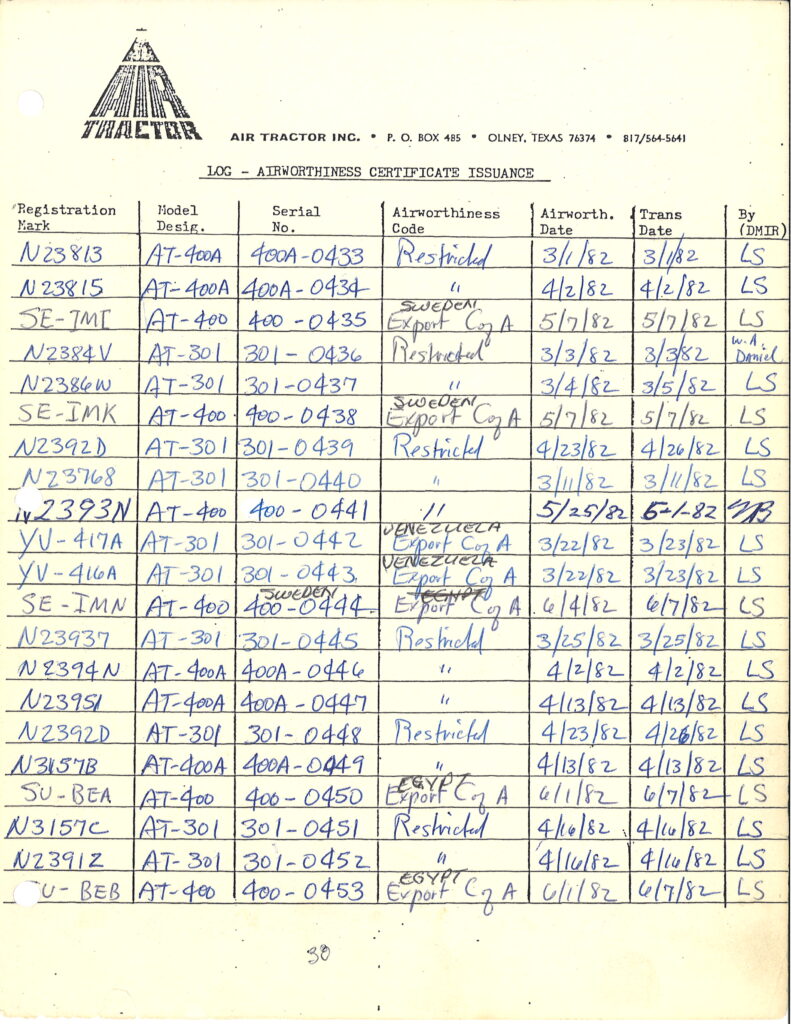 AIR
TRACTOR
AIR TRACTOR INC. • P. O. BOX 485 • OLNEY, TEXAS 76374 • 817/564-5641
LOG - AIRWORTHINESS CERTIFICATE ISSUANCE
Registration Mark Model Desig. Serial No. Airworthiness Code Airworth. Date Trans Date By (DMIR)
N23813 AT-400A 400A-0433 Restricted 3/1/82 3/1/82 LS
N23815 AT-400A 400A-0434 " 4/2/82 4/2/82 LS
SE-IMI AT-400 400-0435 SWEDEN Export C of A 5/7/82 5/7/82 LS
N2384V AT-301 301-0436 Restricted 3/3/82 3/3/82 W.A. Daniel
N2386W AT-301 301-0437 " 3/4/82 3/5/82 LS
SE-IMK AT-400 400-0438 SWEDEN Export C of A 5/7/82 5/7/82 LS
N2392D AT-301 301-0439 Restricted 4/23/82 4/26/82 LS
N23768 AT-301 301-0440 " 3/11/82 3/11/82 LS
N2393N AT-400 400-0441 " 5/25/82 6-1-82
YV-417A AT-301 301-0442 VENEZUELA Export C of A 3/22/82 3/23/82 LS
YV-416A AT-301 301-0443 VENEZUELA Export C of A 3/22/82 3/23/82 LS
SE-IMN AT-400 400-0444 SWEDEN EGYPT Export C of A 6/4/82 6/7/82 LS
N23937 AT-301 301-0445 Restricted 3/25/82 3/25/82 LS
N2394N AT-400A 400A-0446 " 4/2/82 4/2/82 LS
N23951 AT-400A 400A-0447 " 4/13/82 4/13/82 LS
N2392D AT-301 301-0448 Restricted 4/23/82 4/26/82 LS
N3157B AT-400A 400A-0449 " 4/13/82 4/13/82 LS
SU-BEA AT-400 400-0450 EGYPT Export C of A 6/1/82 6/7/82 LS
N3157C AT-301 301-0451 Restricted 4/16/82 4/16/82 LS
N2391Z AT-301 301-0452 " 4/16/82 4/16/82 LS
U-BEB AT-400 400-0453 EGYPT Export C of A 6/1/82 6/7/82 LS
38